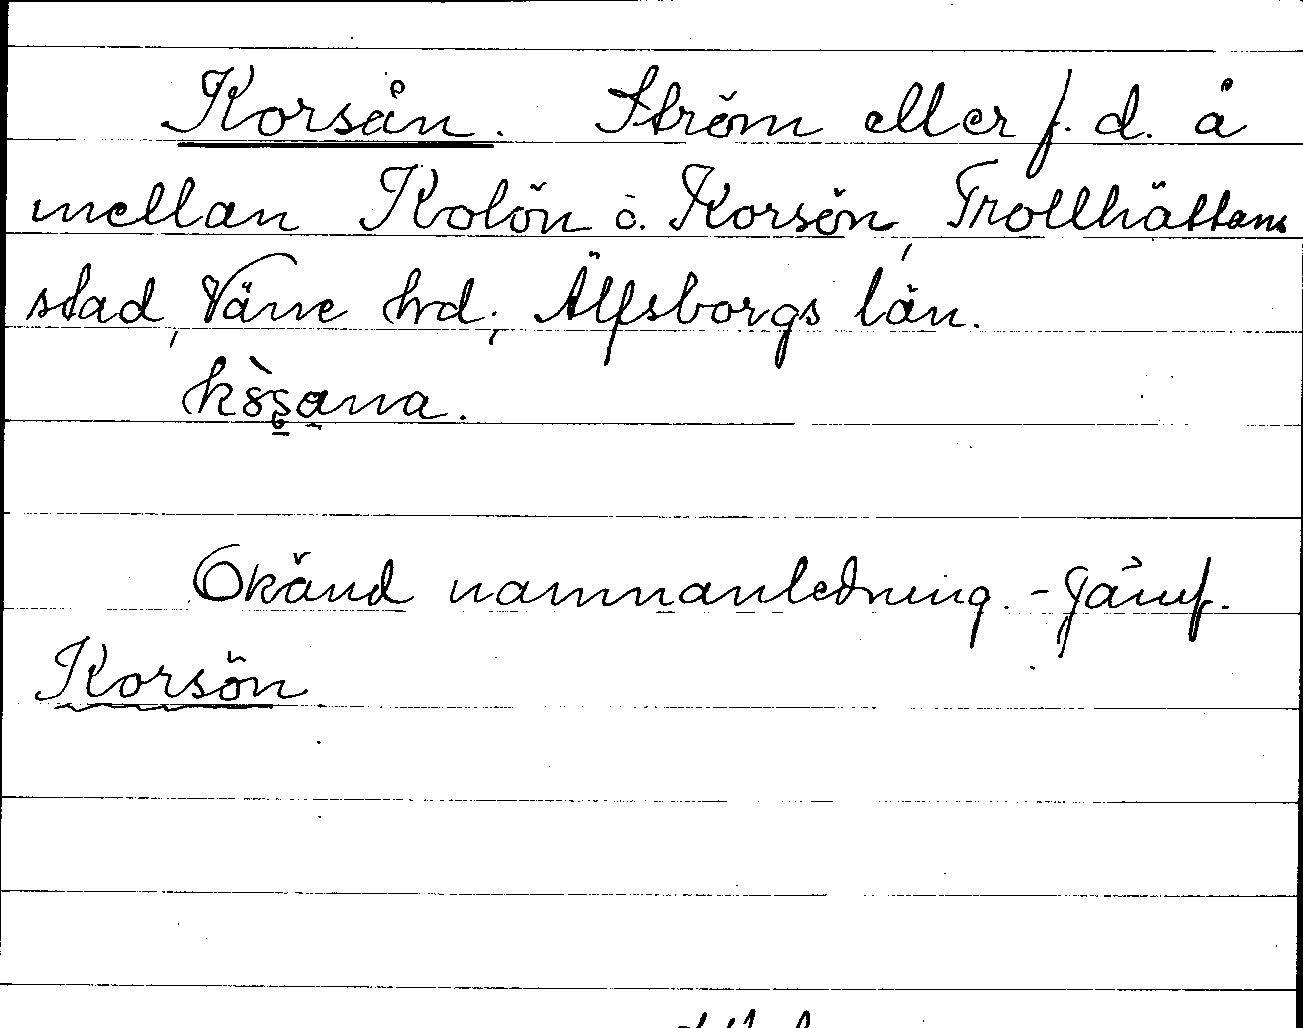 Korsån. Ström eller f. d. å
mellan Kolön o. Korsön, Trollhättans
stad, Väne hd; Älfsborgs län.
kòsana.
Okänd namnanledning. - Jämf.
Korsön